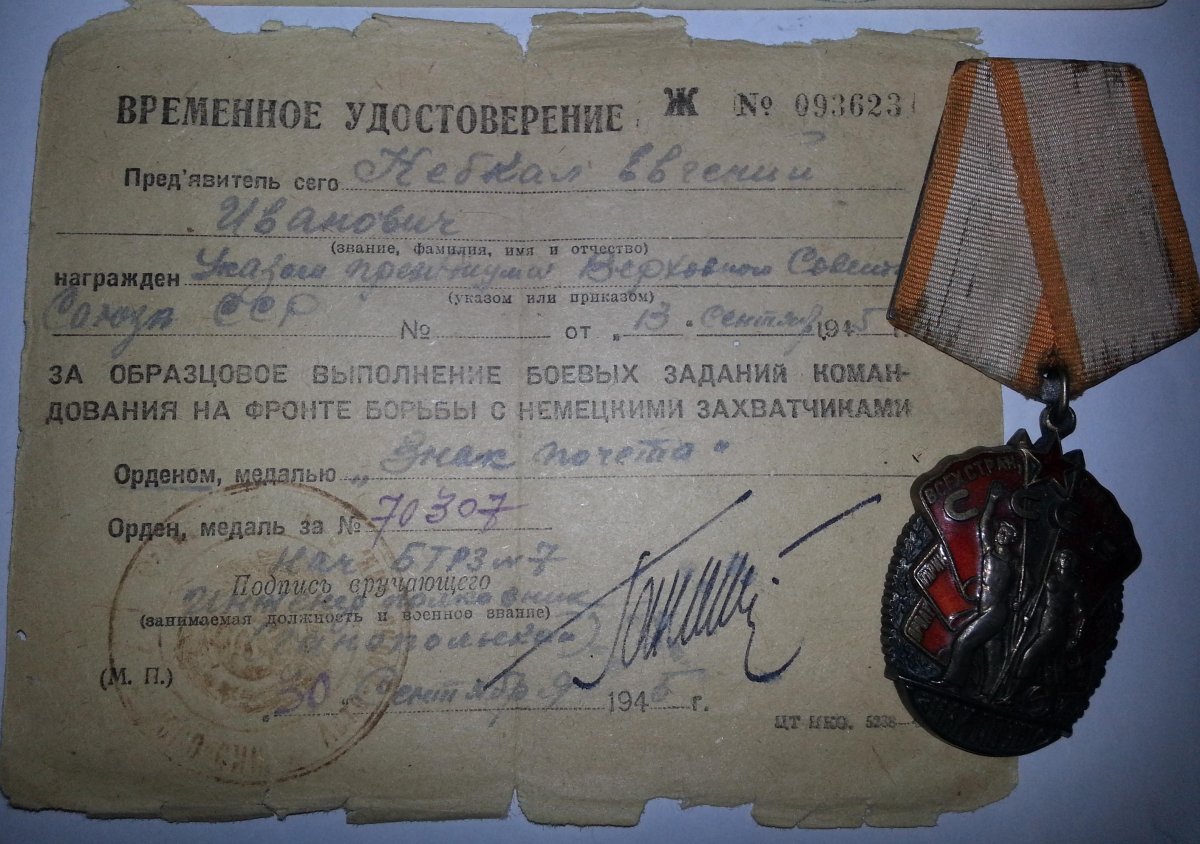 ВРЕМЕННОЕ УДОСТОВЕРЕНИЕ Ж № 093623
Пред'явитель сего Небкал Евгений
Иванович
(звание, фамилия, имя и отчество)
награжден Указом президиума Верховного Совета
(указом или приказом)
Союза ССР № от „13" сентябр 1945 г.
ЗА ОБРАЗЦОВОЕ ВЫПОЛНЕНИЕ БОЕВЫХ ЗАДАНИЙ КОМАН-
ДОВАНИЯ НА ФРОНТЕ БОРЬБЫ С НЕМЕЦКИМИ ЗАХВАТЧИКАМИ
Орденом, медалью „Знак почета"
Орден, медаль за № 70307
Нач. БТРЗ № 7
Подпись вручающего
Инженер полковник
(занимаемая должность и военное звание)
(М. П.)
„30" Сентября 1945 г.
ЦТ НКО. 5238
ВСЕХ СТРАН
С С С